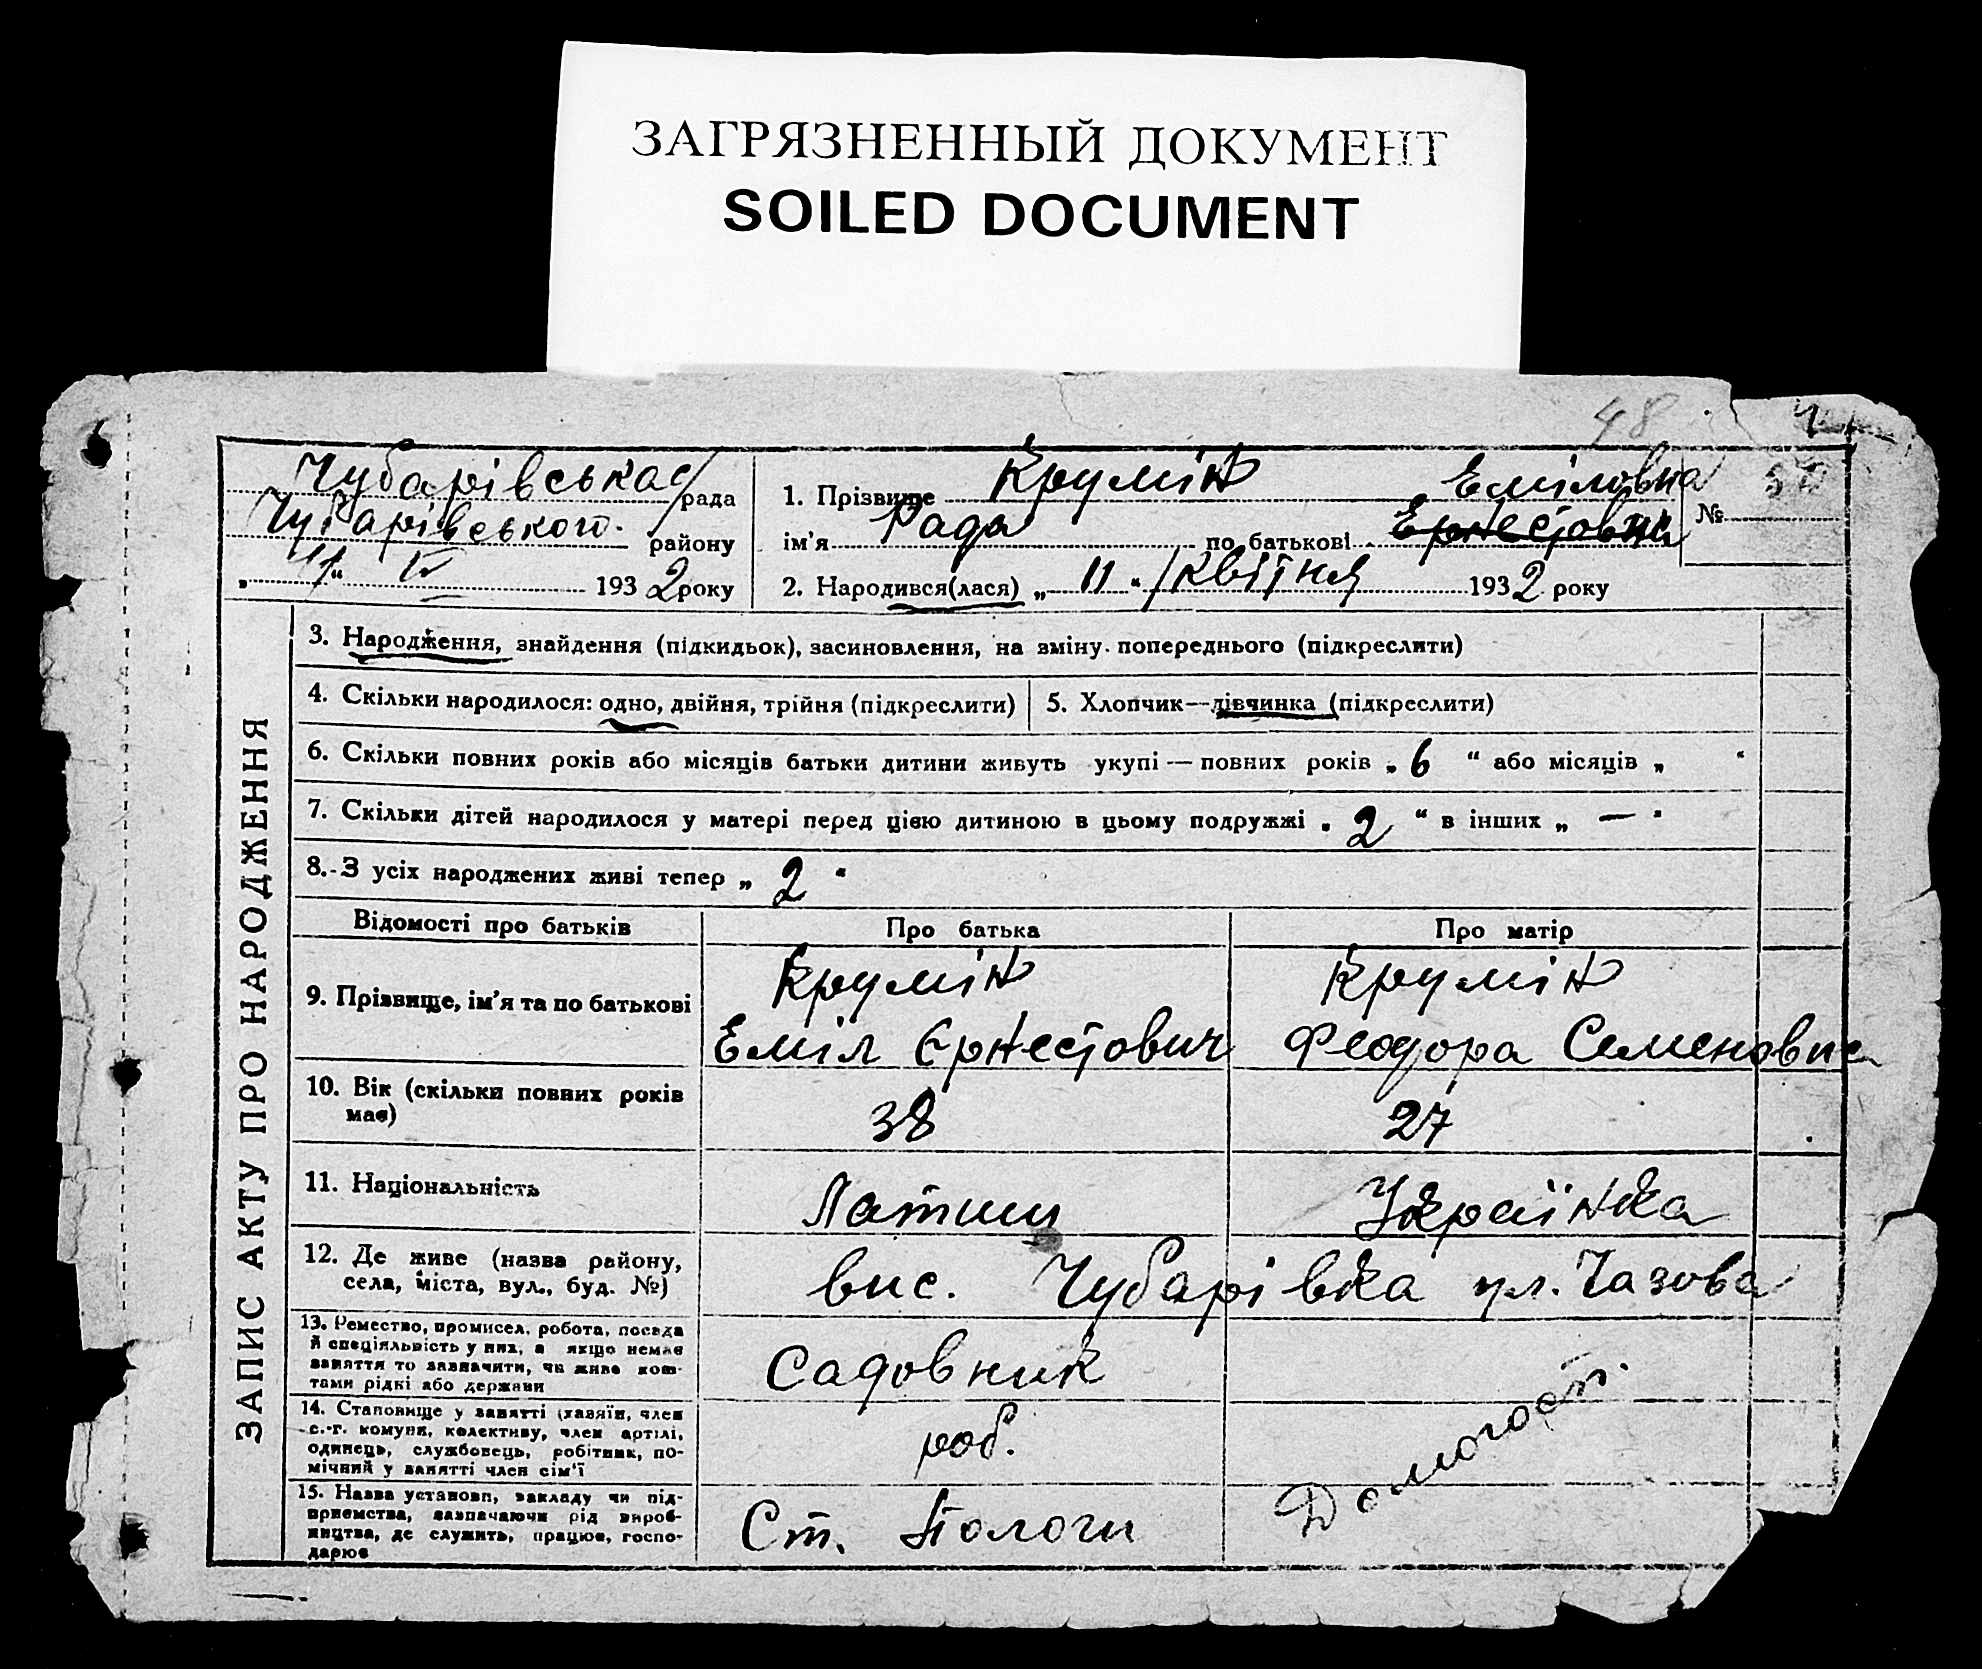 ЗАГРЯЗНЕННЫЙ ДОКУМЕНТ
SOILED DOCUMENT
48
Чубарівська рада
Чубарівського району
„11“ IV 1932 року
1. Прізвище Крумін Еміловна
ім'я Рада по батькові Ернестовна
№ 50
2. Народився(лася) „11“ квітня 1932 року
ЗАПИС АКТУ ПРО НАРОДЖЕННЯ
3. Народження, знайдення (підкидьок), засиновлення, на зміну попереднього (підкреслити)
4. Скільки народилося: одно, двійня, трійня (підкреслити)
5. Хлопчик—дівчинка (підкреслити)
6. Скільки повних років або місяців батьки дитини живуть укупі — повних років „6“ або місяців „ “
7. Скільки дітей народилося у матері перед цією дитиною в цьому подружжі „2“ в інших „—“
8. З усіх народжених живі тепер „2“
Відомості про батьків Про батька Про матір
9. Прізвище, ім'я та по батькові
Крумін
Еміл Єрнестович
Крумін
Феодора Семеновна
10. Вік (скільки повних років
має)
38
27
11. Національність
Латиш
Українка
12. Де живе (назва району,
села, міста, вул., буд. №)
вис. Чубарівка ул. Чазова
13. Ремество, промисел, робота, посада
й спеціяльність у них, а якщо немає
заняття то зазначити, чи живе кош-
тами рідні або держави
Садовник
14. Становище у занятті (хазяїн, член
с.-г. комуни, колективу, член артілі,
одинець, службовець, робітник, по-
мічний у занятті член сім'ї
роб.
15. Назва установи, закладу чи під-
приємства, зазначаючи рід вироб-
ництва, де служить, працює, госпо-
дарює
Ст. Пологи
Домогосп.